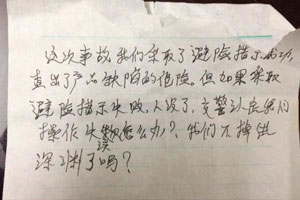 这次事故,我们采取了避险措示成功,
查出了产品缺陷的危险。但如果采取
避险措示失败,人没了,交警认定我们
操作失误怎么办?我们不掉进
深渊了吗?